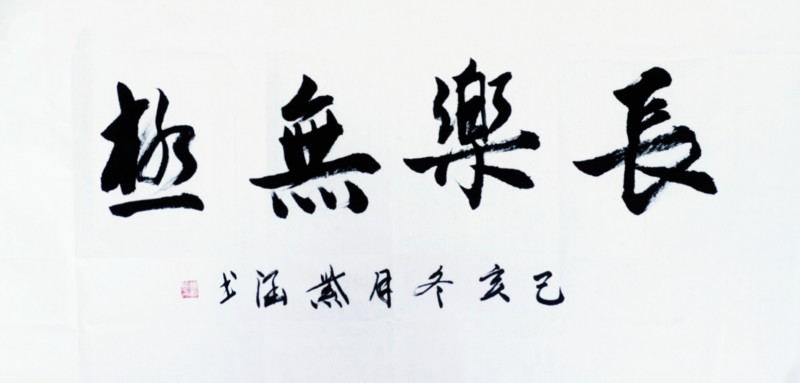 長樂無極
己亥冬月紫涵书